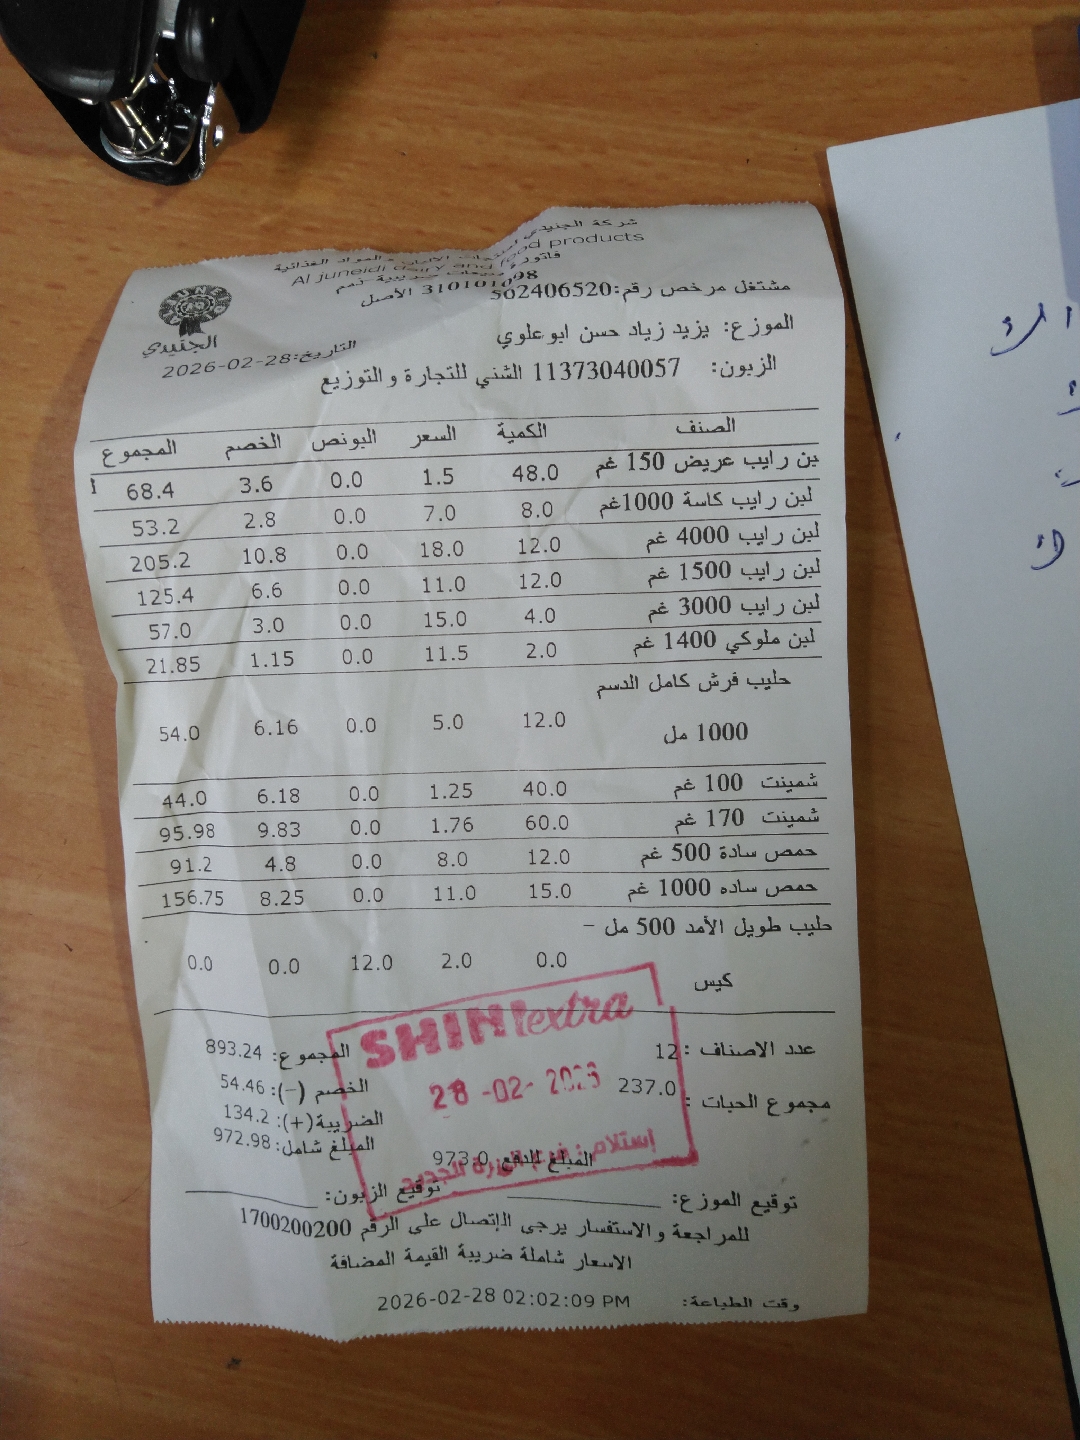 شركة الجنيدي لمنتجات الالبان والمواد الغذائية
Al juneidi dairy and food products
فاتورة
310101098 الأصل
مشتغل مرخص رقم:562406520
الجنيدي
الموزع: يزيد زياد حسن ابوعلوي
التاريخ:28-02-2026
الزبون: 11373040057 الشني للتجارة والتوزيع
الصنف الكمية السعر البونص الخصم المجموع
بن رايب عريض 150 غم 48.0 1.5 0.0 3.6 68.4
لبن رايب كاسة 1000غم 8.0 7.0 0.0 2.8 53.2
لبن رايب 4000 غم 12.0 18.0 0.0 10.8 205.2
لبن رايب 1500 غم 12.0 11.0 0.0 6.6 125.4
لبن رايب 3000 غم 4.0 15.0 0.0 3.0 57.0
لبن ملوكي 1400 غم 2.0 11.5 0.0 1.15 21.85
حليب فرش كامل الدسم
1000 مل 12.0 5.0 0.0 6.16 54.0
شمينت 100 غم 40.0 1.25 0.0 6.18 44.0
شمينت 170 غم 60.0 1.76 0.0 9.83 95.98
حمص سادة 500 غم 12.0 8.0 0.0 4.8 91.2
حمص ساده 1000 غم 15.0 11.0 0.0 8.25 156.75
حليب طويل الأمد 500 مل -
كيس 0.0 2.0 12.0 0.0 0.0
عدد الاصناف : 12 المجموع: 893.24
مجموع الحبات : 237.0 الخصم (-): 54.46
الضريبة(+): 134.2
المبلغ شامل: 972.98
المبلغ للدفع 973.0
SHINI extra
28 -02- 2026
إستلام : فرع
توقيع الموزع: توقيع الزبون:
للمراجعة والاستفسار يرجى الإتصال على الرقم 1700200200
الاسعار شاملة ضريبة القيمة المضافة
وقت الطباعة: 2026-02-28 02:02:09 PM